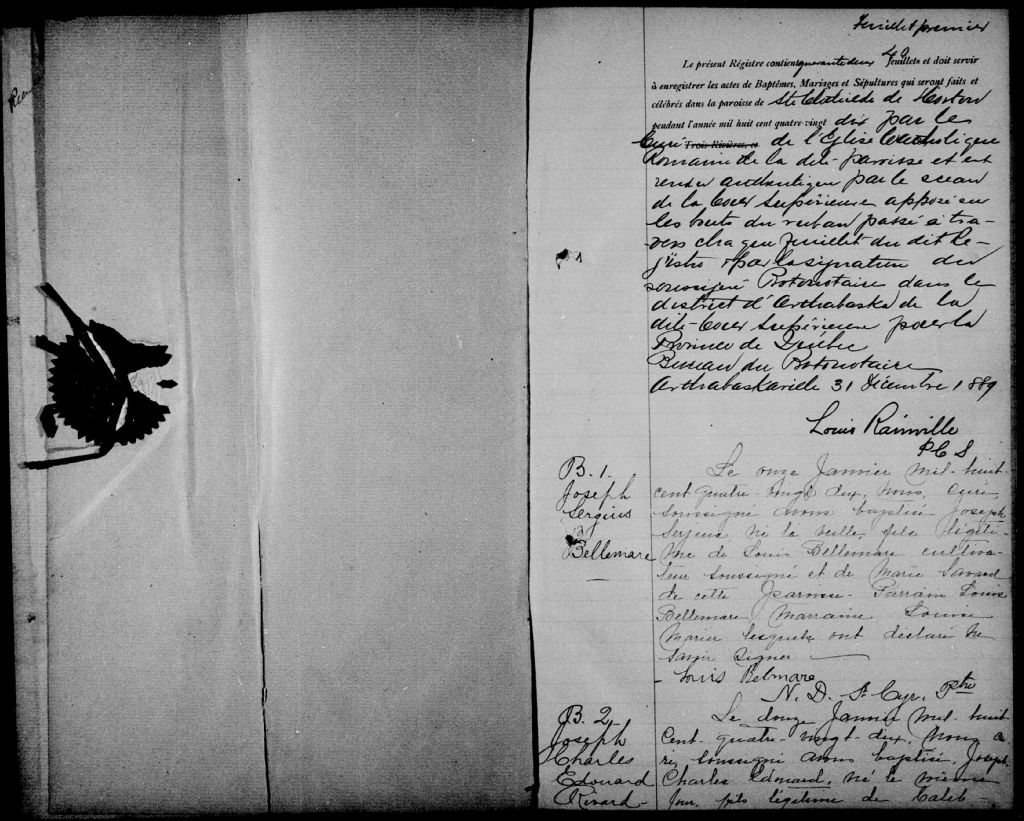 Feuillet premier
Le présent Régistre contient quarante deux 42 feuillets et doit servir
à enregistrer les actes de Baptêmes, Mariages et Sépultures qui seront faits et
célébrés dans la paroisse de Ste Clotilde de Horton
pendant l'année mil huit cent quatre-vingt dix par le
Curé Trois-Rivières, ce de l'Eglise Catholique
Romaine de la dite paroisse et est
rendu authentique par le sceau
de la Cour Supérieure apposé sur
les bouts du ruban passé à tra-
vers chaque feuillet du dit Re-
gistre & par la signature du
soussigné Protonotaire dans le
district d'Arthabaska de la
dite Cour Supérieure pour la
Province de Québec
Bureau du Protonotaire
Arthabaskaville 31 Décembre 1889
Louis Rainville
P C S
1
B. 1.
Joseph
Sergius
Bellemare
Le onze Janvier mil-huit-
cent quatre-vingt dix, nous, curé
soussigné avons baptisé Joseph
Serjius, né la veille, fils légiti-
me de Louis Bellemare cultiva-
teur soussigné et de Marie Savard
de cette paroisse. Parrain Louis
Bellemare, Marraine Louise
Marier lesquels ont déclaré ne
savoir signer
Louis Belmare
N. D. St Cyr, Ptre
B. 2
Joseph
Charles
Edouard
Rivard
Le douze Janvier mil-huit-
cent-quatre-vingt-dix, nous cu-
ré, soussigné avons baptisé Joseph
Charles Edouard, né le même
jour, fils légitime de Caleb-